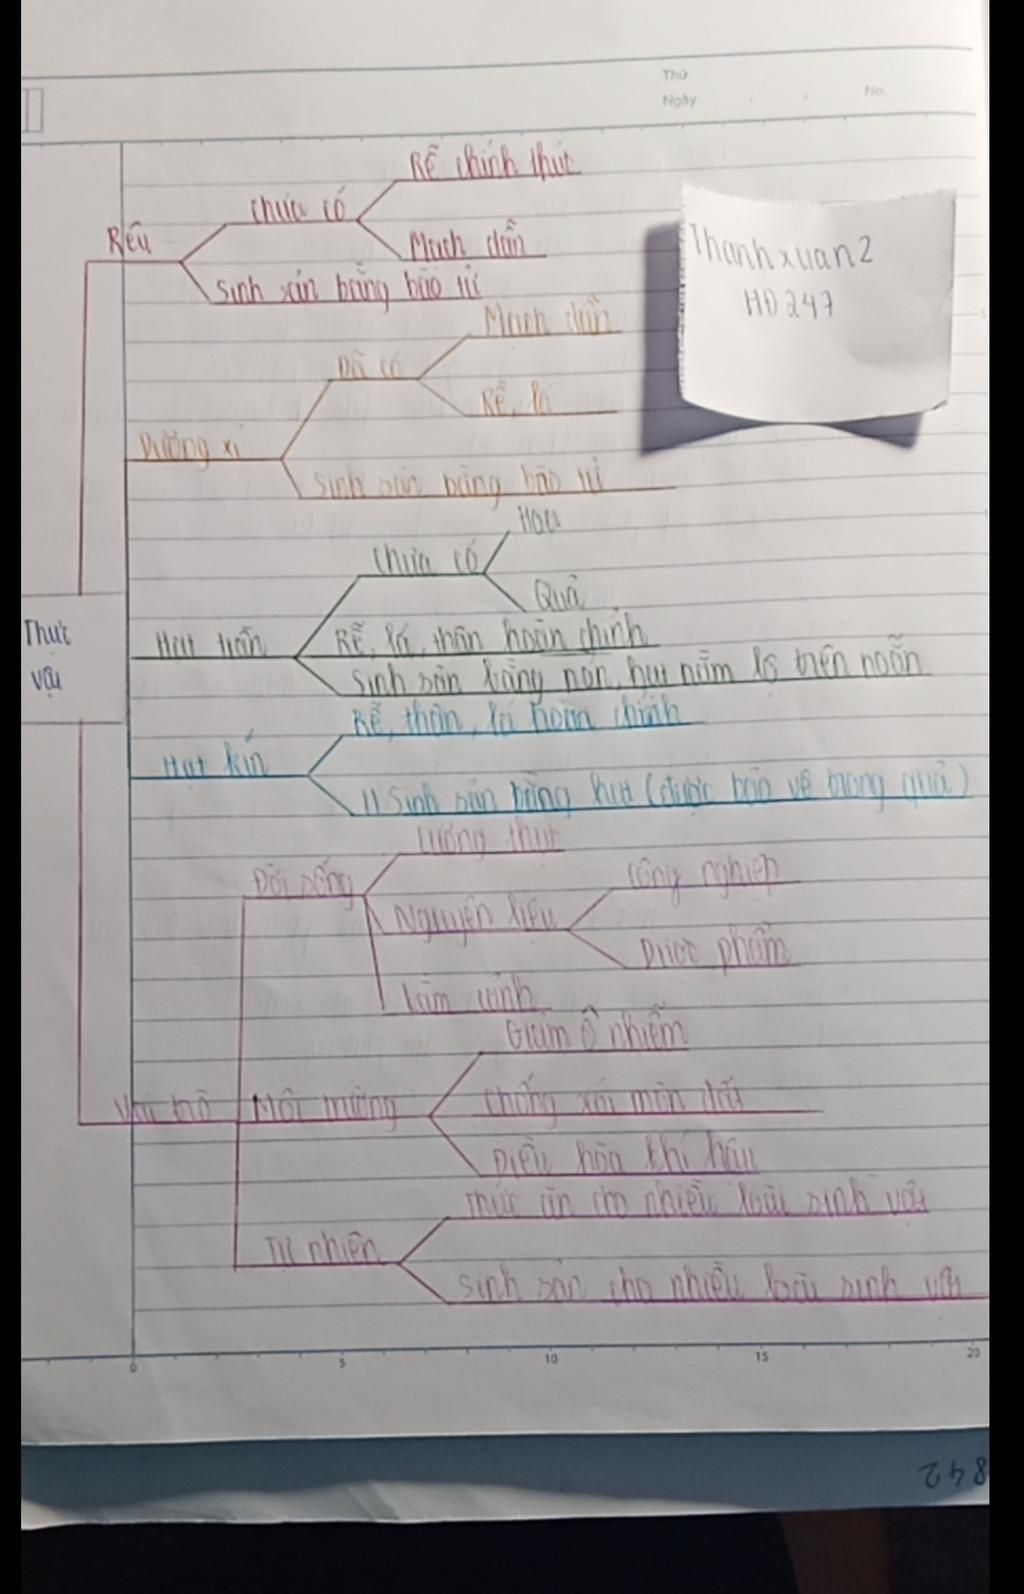 Thứ
Ngày
No.
Rễ chính thức
chưa có
Rêu
Mạch dẫn
sinh sản bằng bào tử
Thanhxuan2
HD247
Mạch dẫn
Đã có
Rễ, lá
Dương xỉ
Sinh sản bằng bào tử
Hoa
chưa có
Quả
Thực
vật
Rễ, lá, thân hoàn chỉnh
Hạt trần
Sinh sản bằng nón, hạt nằm lộ trên noãn
Rễ, thân, lá hoàn chỉnh
Hạt kín
Sinh sản bằng hạt (được bảo vệ trong quả)
Lương thực
Đời sống
công nghiệp
Nguyên liệu
Dược phẩm
Làm cảnh
Giảm ô nhiễm
Vai trò
Môi trường
chống xói mòn đất
Điều hòa khí hậu
Thức ăn cho nhiều loài sinh vật
Tự nhiên
sinh sản cho nhiều loài sinh vật
0 5 10 15 20
842